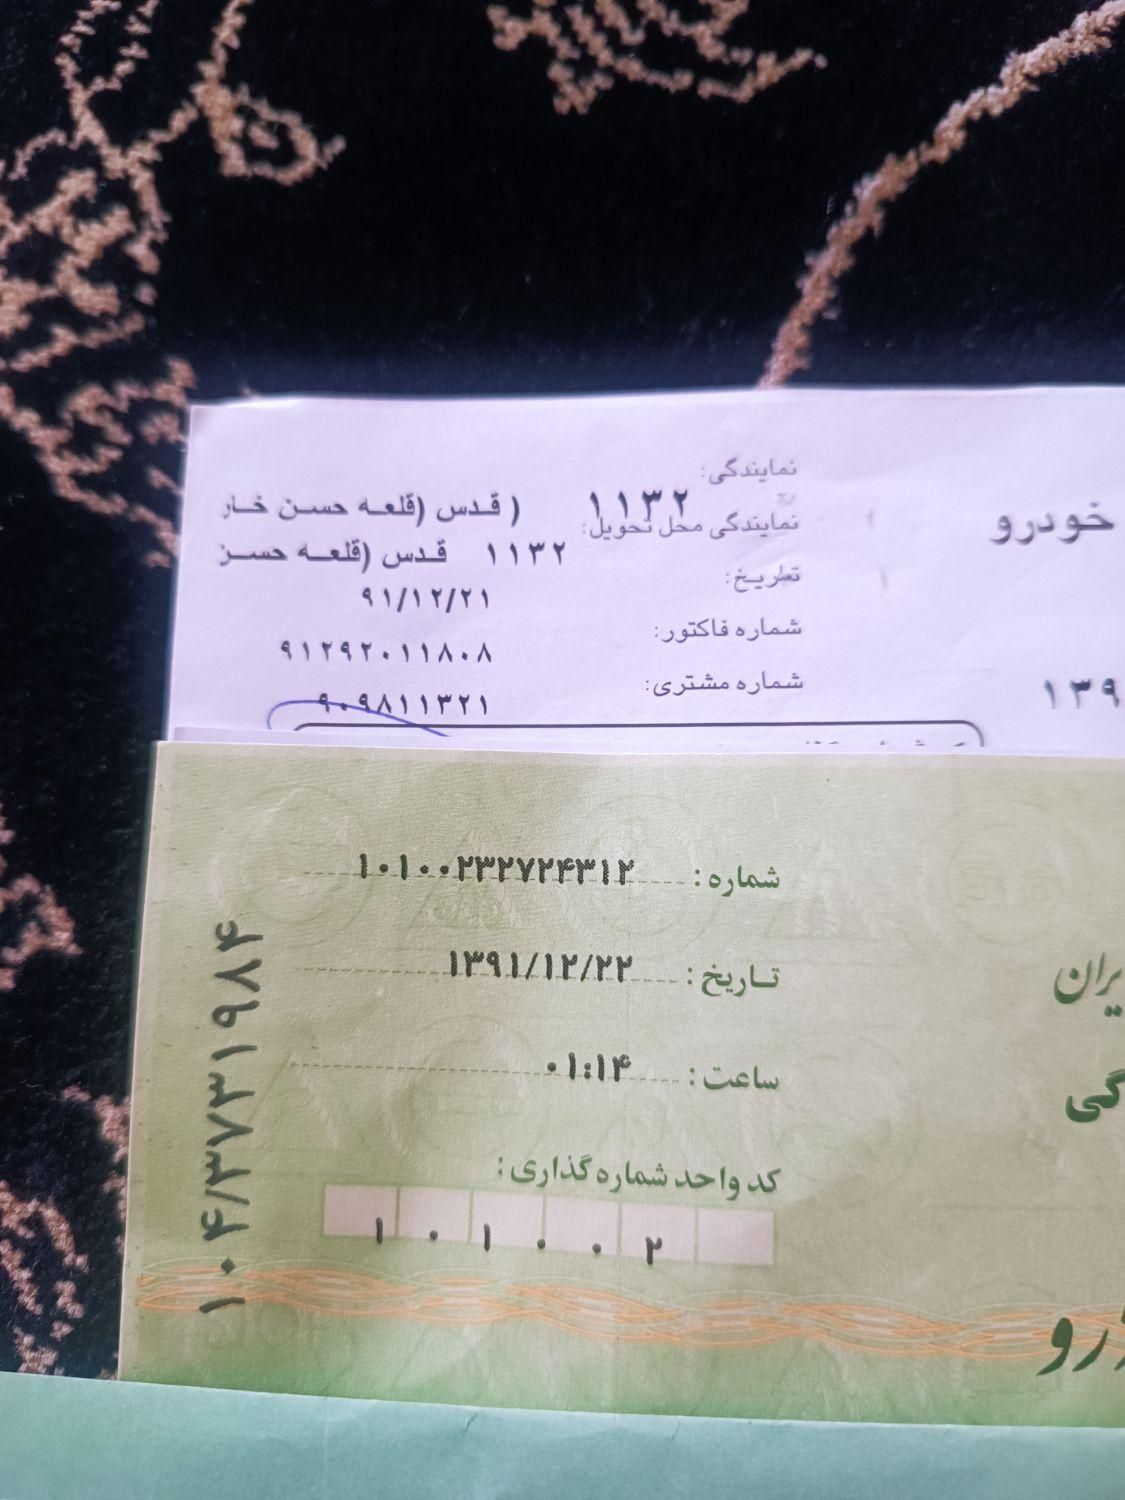 نمایندگی: ۱۱۳۲ ( قدس (قلعه حسن خار
نمایندگی محل تحویل: ۱۱۳۲ قدس (قلعه حسز
خودرو
تاریخ: ۹۱/۱۲/۲۱
شماره فاکتور: ۹۱۲۹۲۰۱۱۸۰۸
شماره مشتری: ۹۰۹۸۱۱۳۲۱
۱۳۹
شماره: ۱۰۱۰۰۲۳۲۷۲۴۳۱۲
تاریخ: ۱۳۹۱/۱۲/۲۲
یران
ساعت: ۰۱:۱۴
گی
کد واحد شماره گذاری:
۱ ۰ ۱ ۰ ۰ ۲
رو
۱۰۴/۳۷۳۱۹۸۴